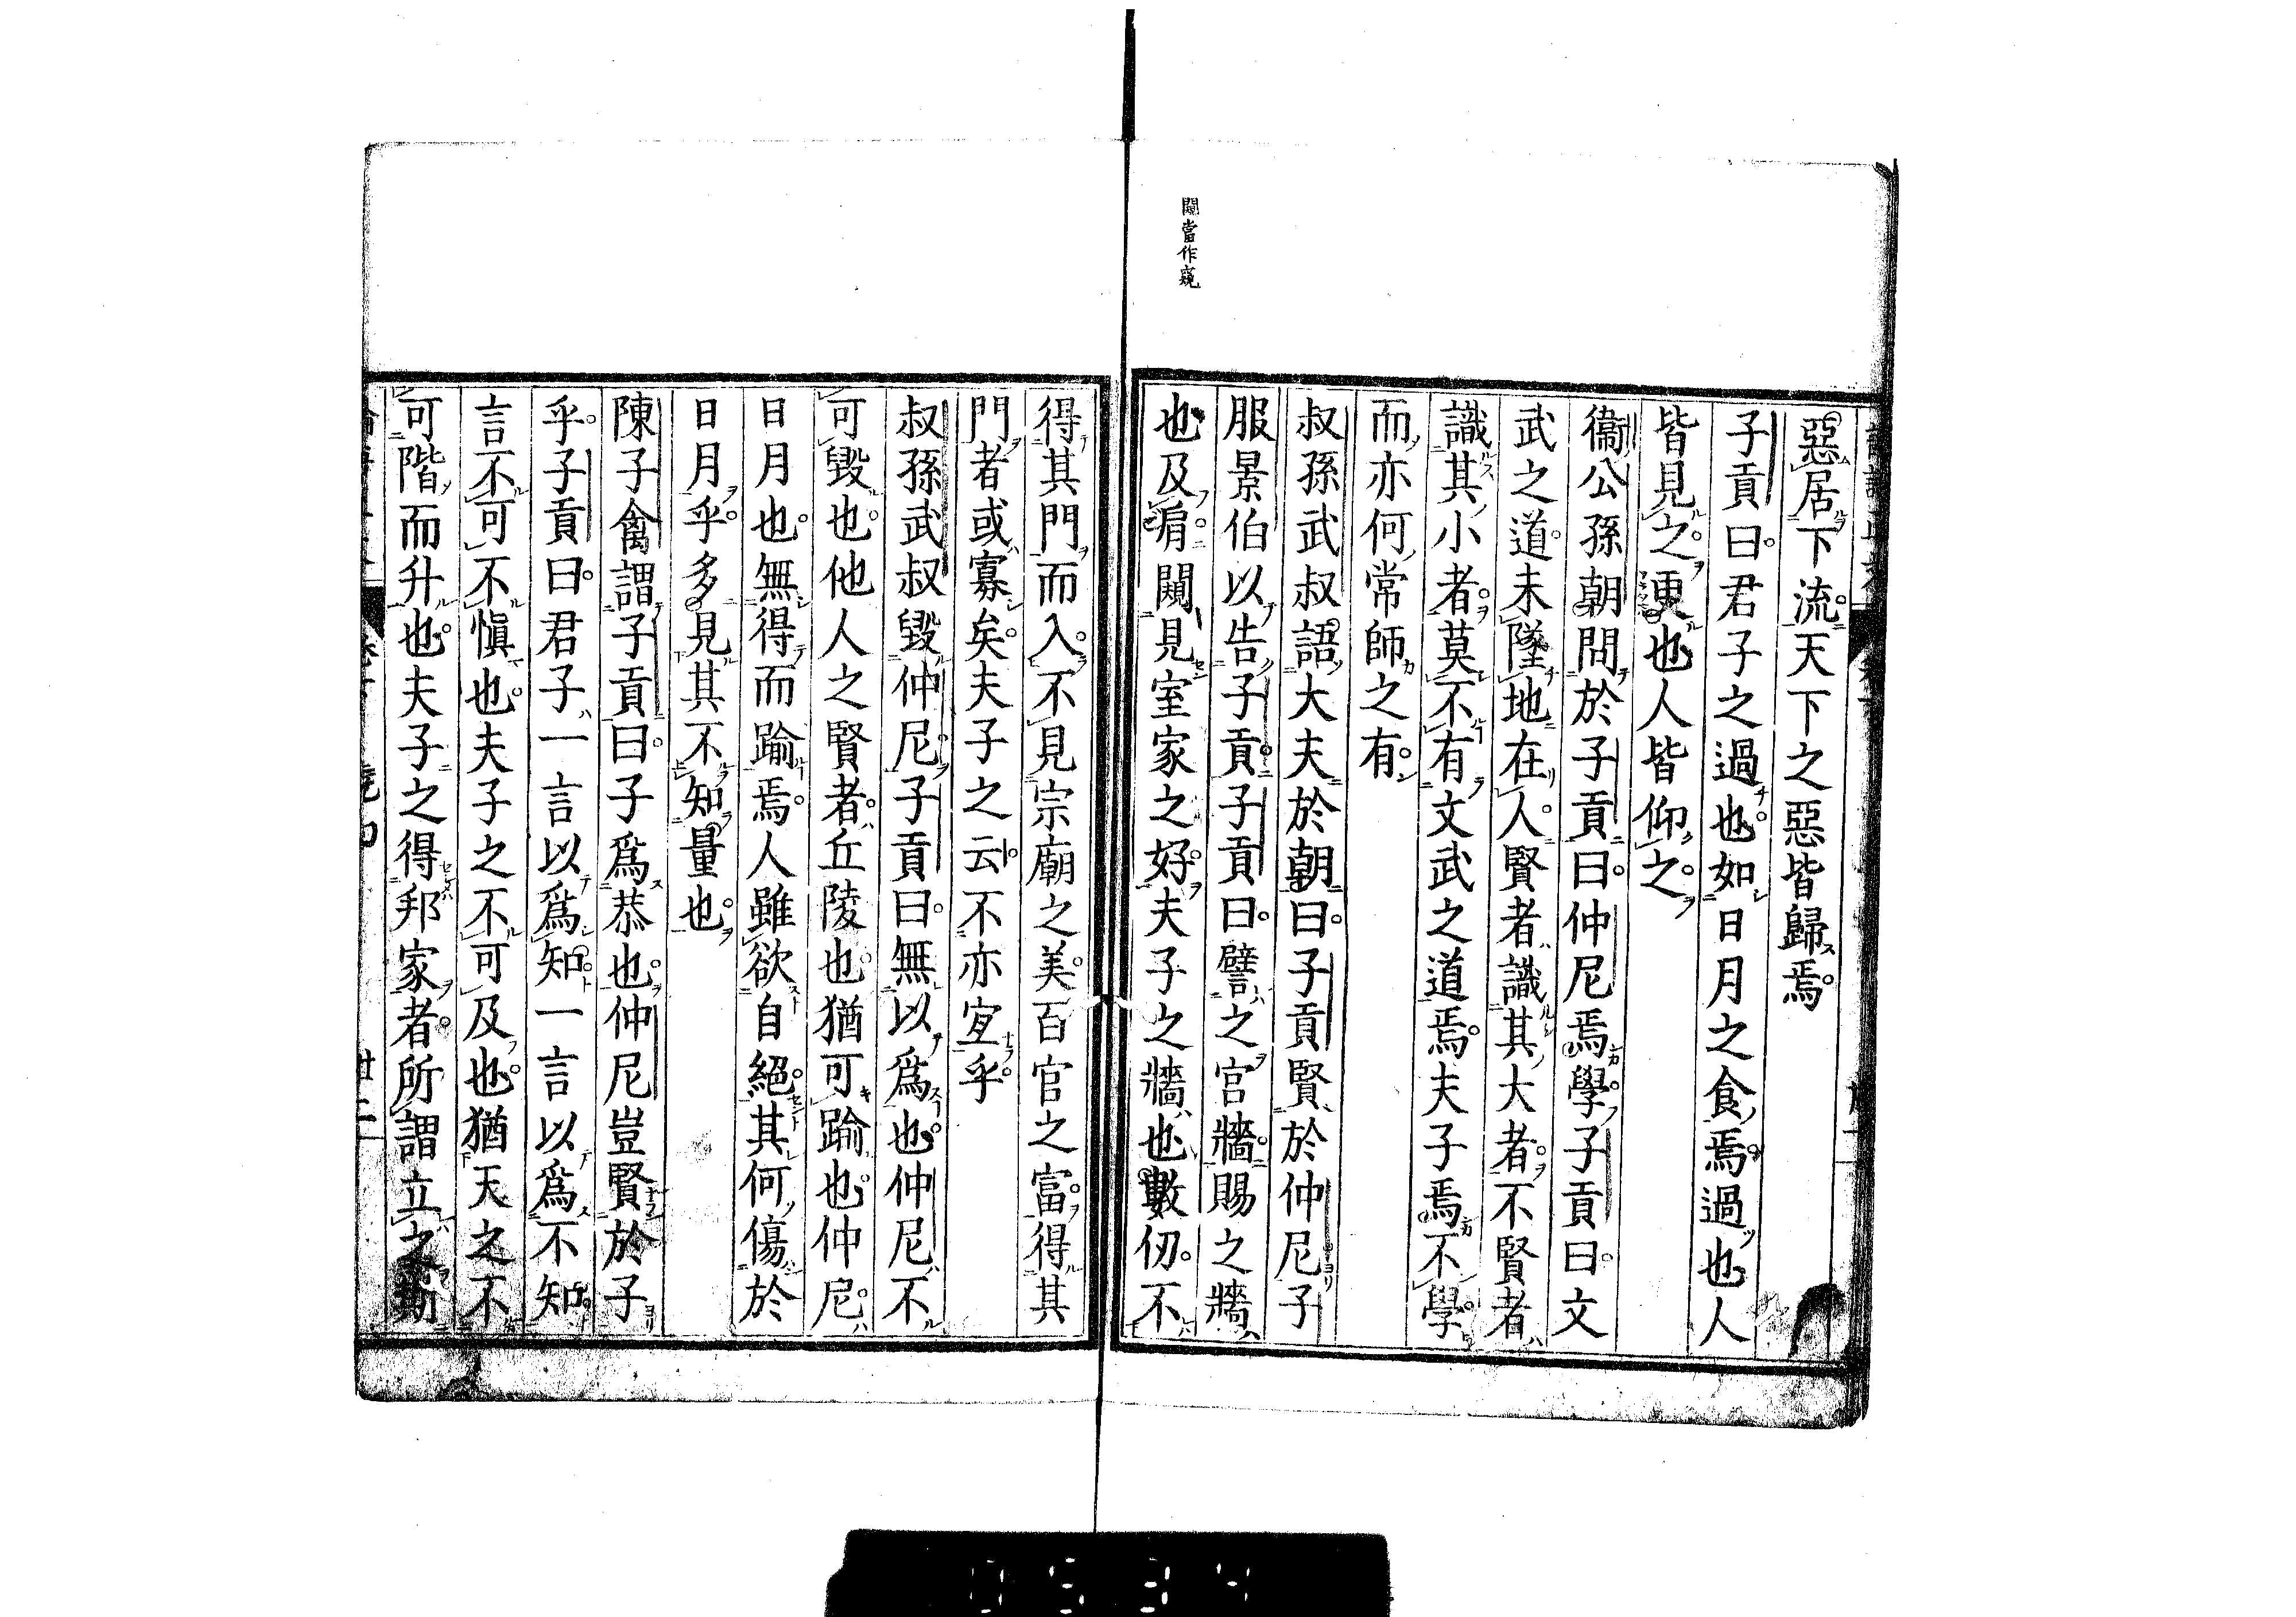 閴當作窺
惡居下流天下之惡皆歸焉
子貢曰君子之過也如日月之食焉過也人
皆見之更也人皆仰之
衞公孫朝問於子貢曰仲尼焉學子貢曰文
武之道未墜地在人賢者識其大者不賢者
識其小者莫不有文武之道焉夫子焉不學
而亦何常師之有
叔孫武叔語大夫於朝曰子貢賢於仲尼子
服景伯以告子貢子貢曰譬之宮牆賜之牆
也及肩闚見室家之好夫子之牆也數仞不
得其門而入不見宗廟之美百官之富得其
門者或寡矣夫子之云不亦宜乎
叔孫武叔毀仲尼子貢曰無以爲也仲尼不
可毀也他人之賢者丘陵也猶可踰也仲尼
日月也無得而踰焉人雖欲自絕其何傷於
日月乎多見其不知量也
陳子禽謂子貢曰子爲恭也仲尼豈賢於子
乎子貢曰君子一言以爲知一言以爲不知
言不可不愼也夫子之不可及也猶天之不
可階而升也夫子之得邦家者所謂立之